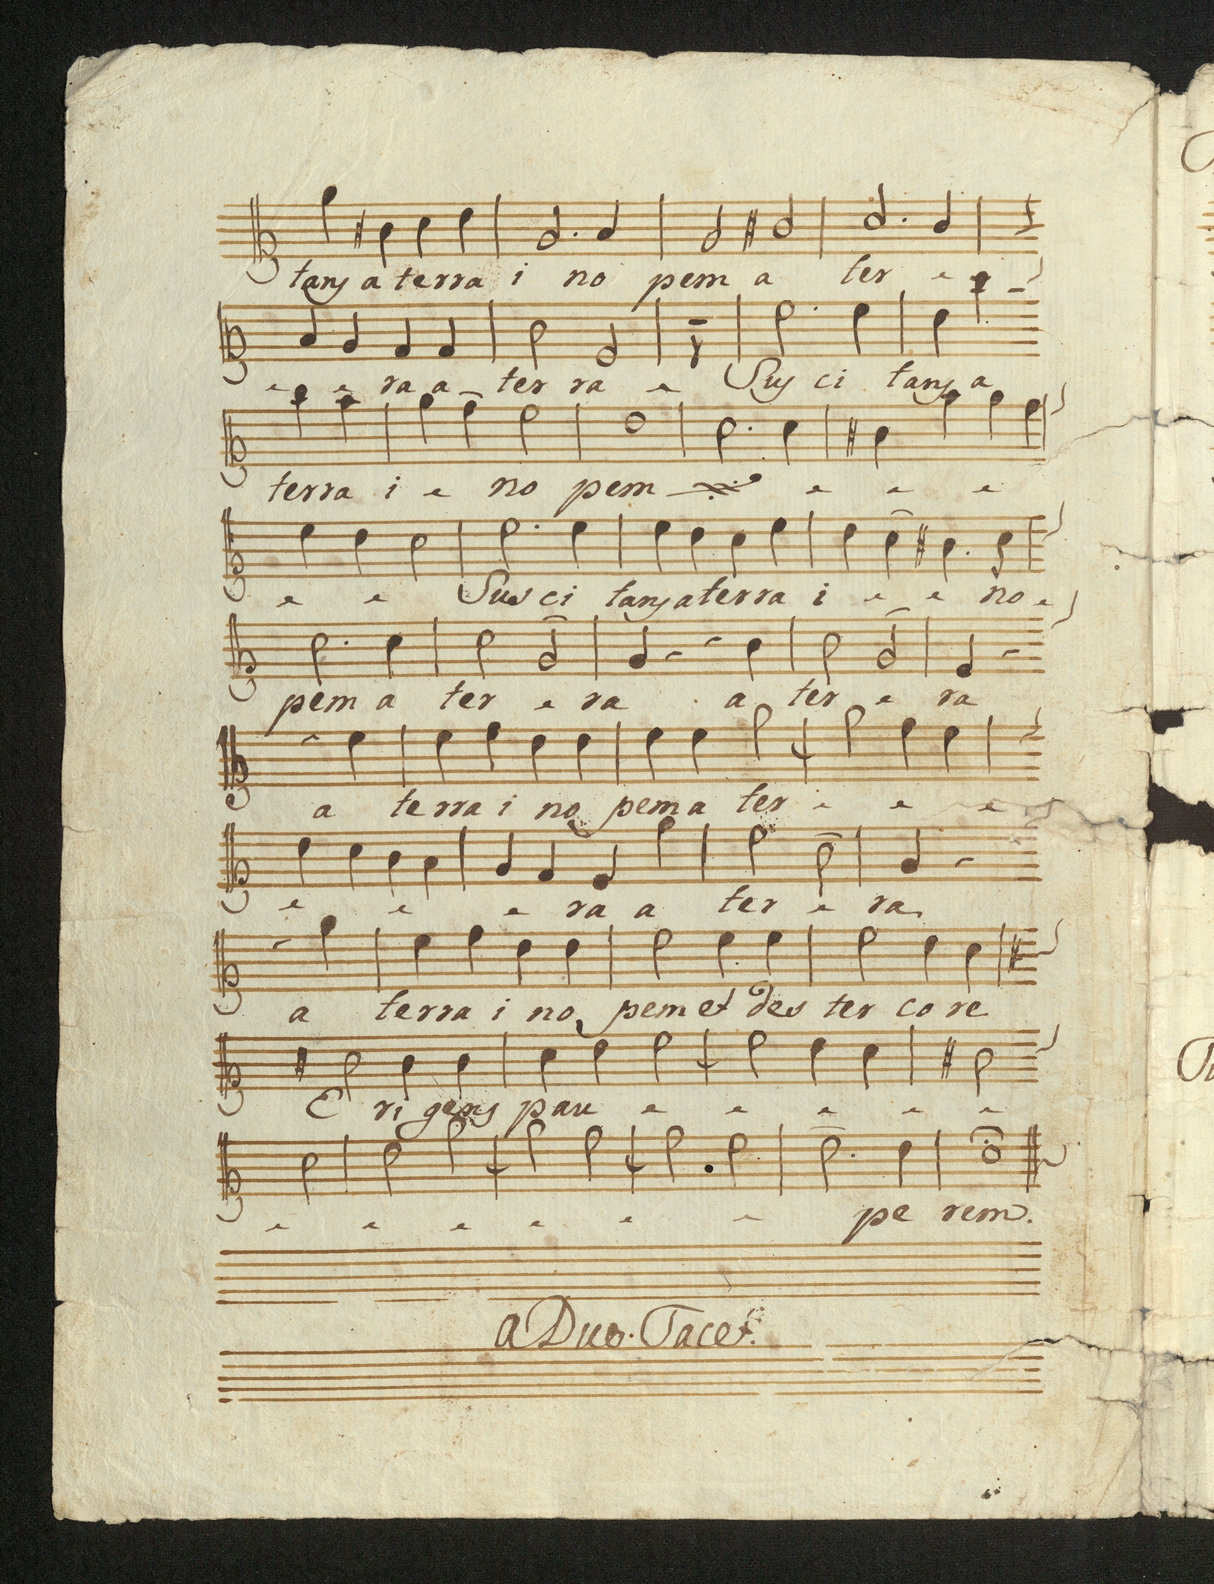 tans a terra i no pem a ter - e -
- e - ra a ter ra - Sus ci tans a
terra i - no pem - - -
- - Sus ci tans a terra i - - no -
pem a ter - ra a ter - ra
a terra i no pem a ter - - -
- - - ra a ter - ra
a terra i no pem et des ter co re
E ri gens pau - - - - -
- - - - - - pe rem.
a Duo. Tacet.